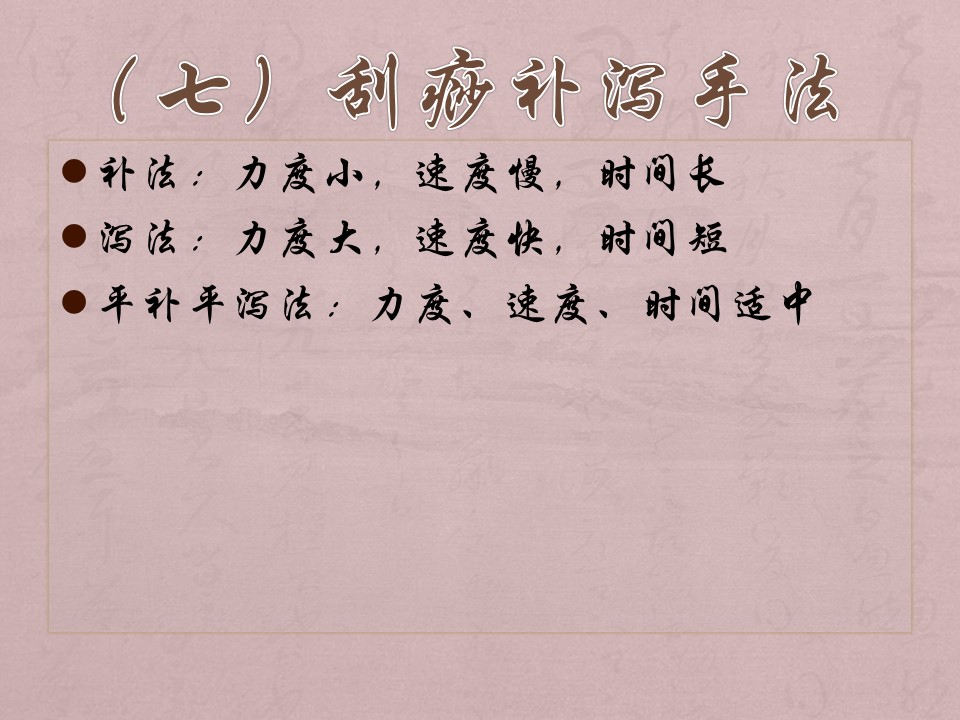 （七）刮痧补泻手法
补法：力度小，速度慢，时间长
泻法：力度大，速度快，时间短
平补平泻法：力度、速度、时间适中